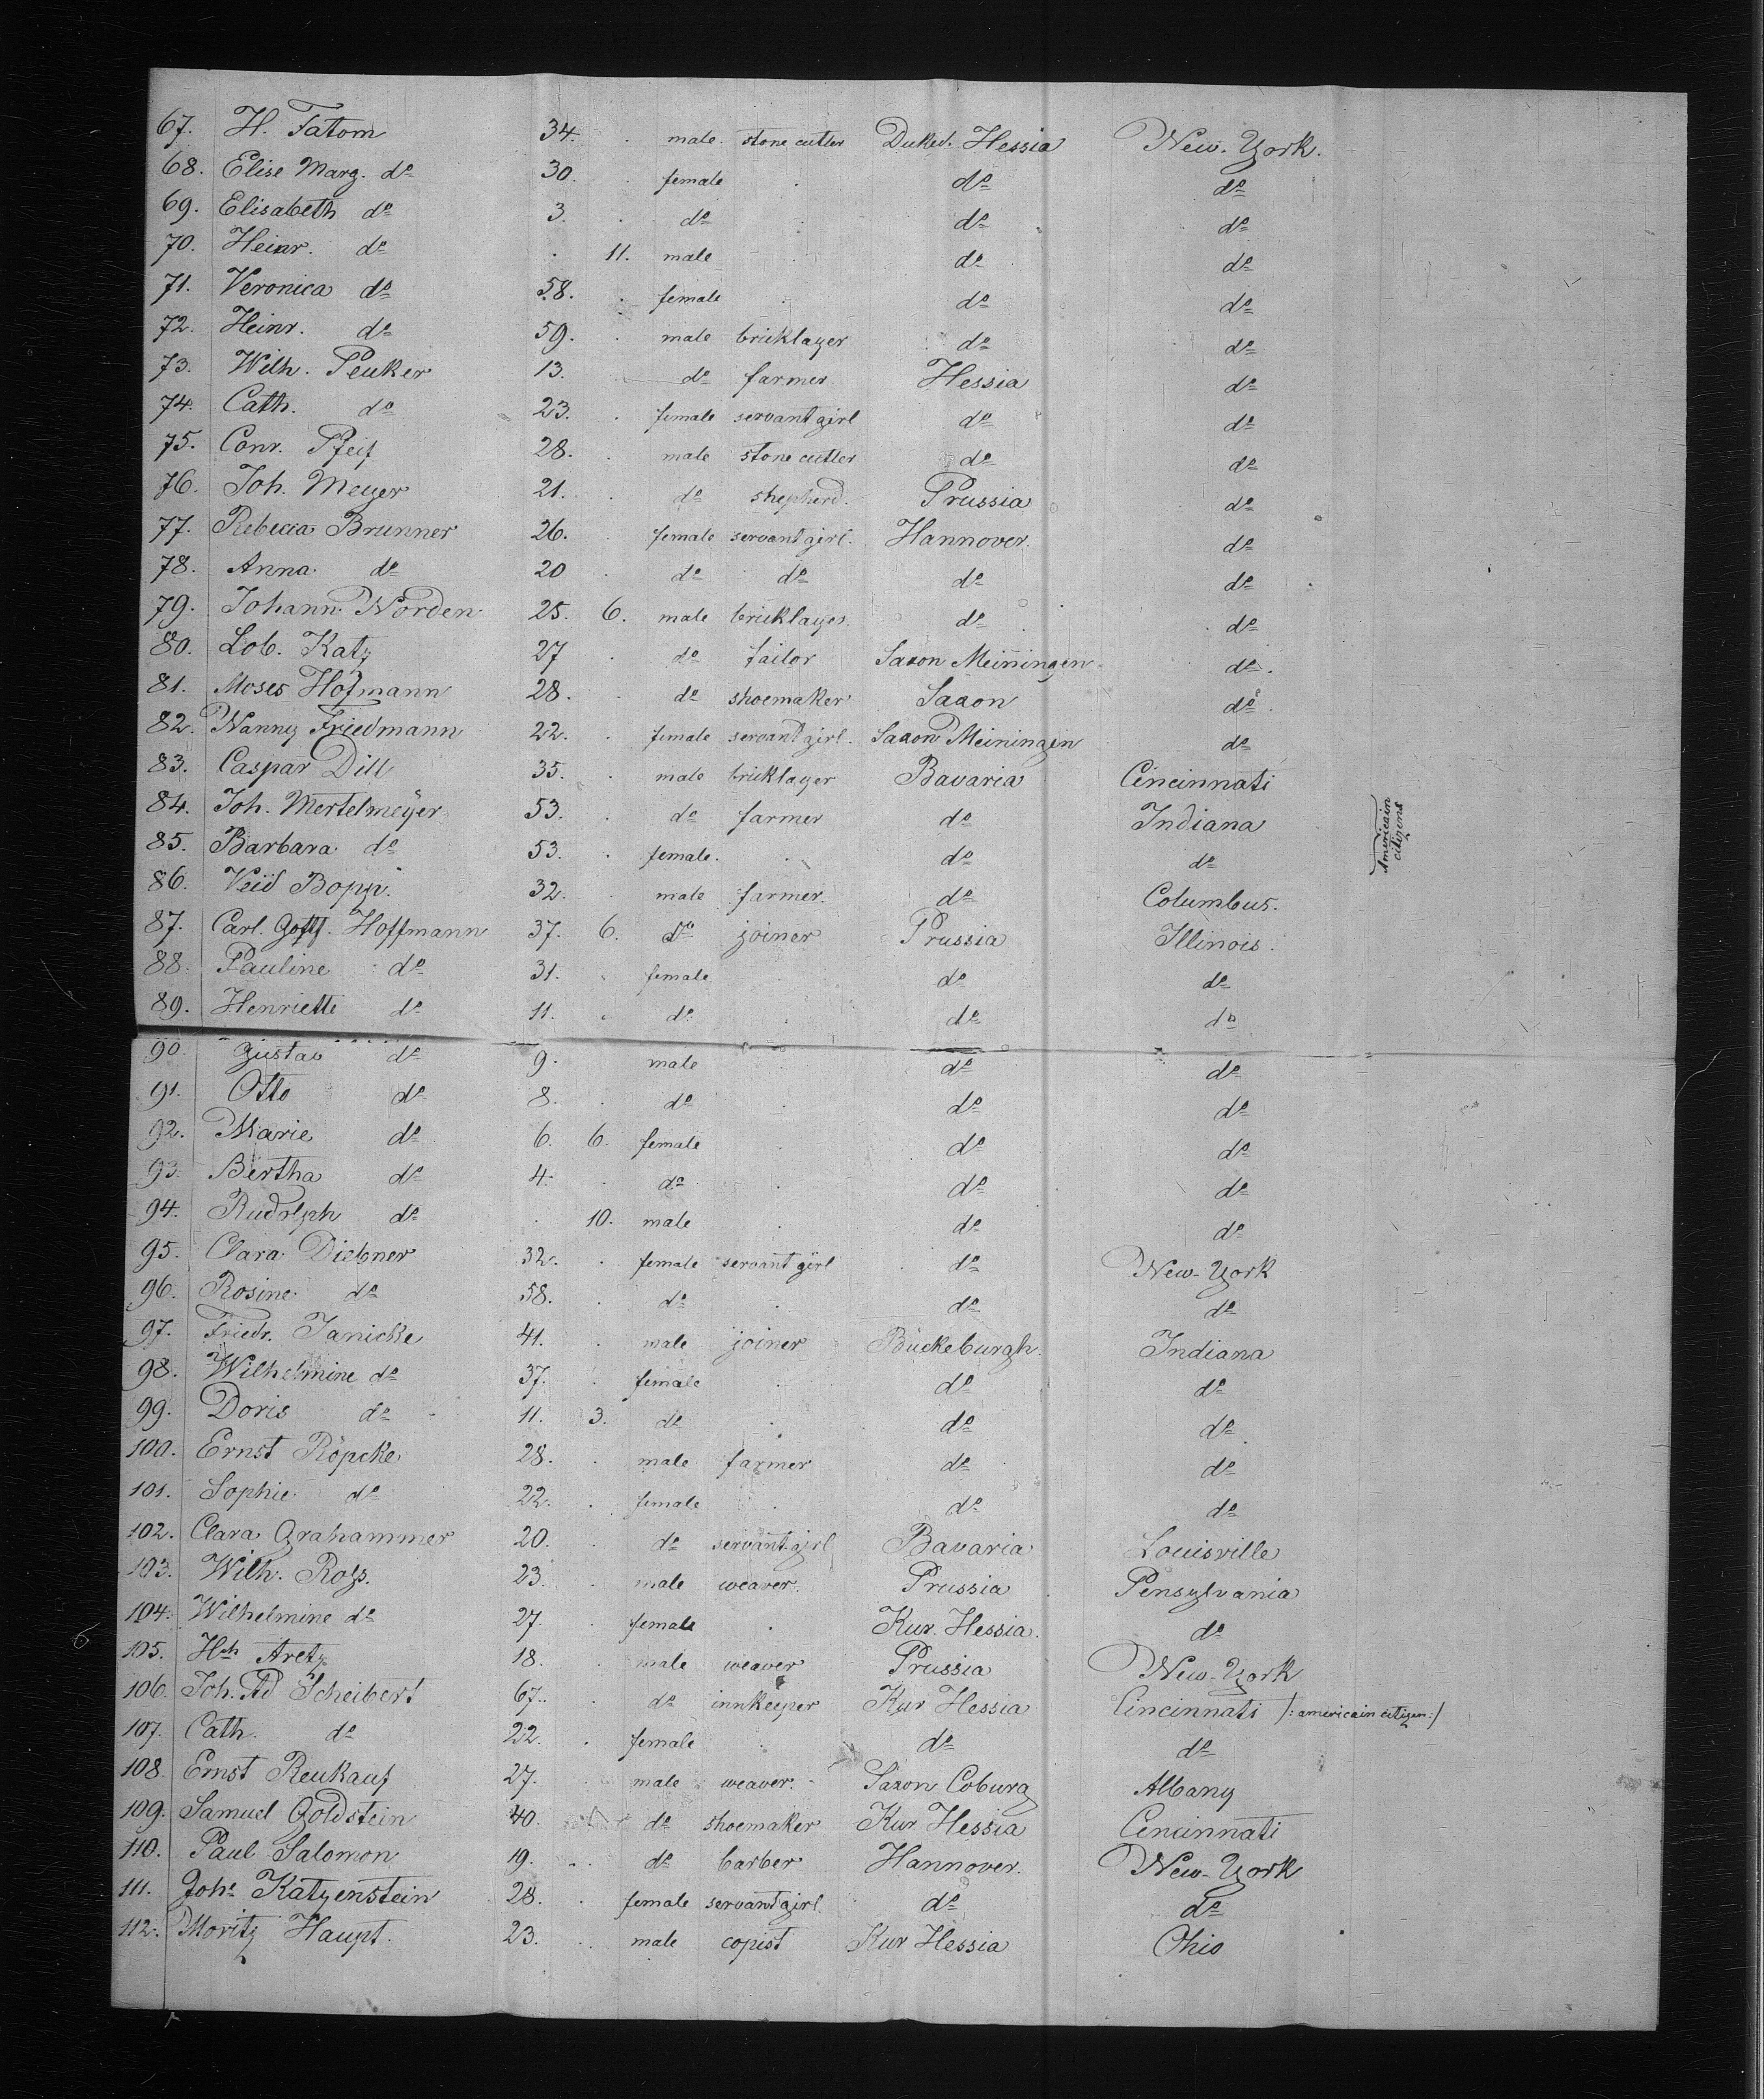 67. H. Fatom 34. male stone cutler Duked. Hessia New-York.
68. Elise Marg. do 30. female do do
69. Elisabeth do 3. do do do
70. Heinr. do 11. male do do
71. Veronica do 58. female do do
72. Heinr. do 59. male bricklayer do do
73. Wilh. Peuker 13. do farmer Hessia do
74. Cath. do 23. female servant girl do do
75. Conr. Pfeif 28. male stone cutler do do
76. Joh. Meyer 21. do shepherd. Prussia do
77. Rebecca Brunner 26. female servant girl. Hannover. do
78. Anna do 20 do do do do
79. Johann Norden 25. 6. male bricklayer do do
80. Lob. Katz 27 do tailor Saxon Meiningen do.
81. Moses Hofmann 28. do shoemaker Saxon do.
82. Nanny Friedmann 22. female servant girl. Saxon Meiningen do
83. Caspar Dill 35. male bricklayer Bavaria Cincinnati
84. Joh. Mertelmeyer 53. do farmer do Indiana
americain citizens
85. Barbara do 53. female. do do
86. Veid Bopp. 32. male farmer. do Columbus.
87. Carl. Hoffmann 37. 6. do joiner Prussia Illinois.
88. Pauline do 31. female do do
89. Henriette do 11. do do do
90. Gustav do 9. male do do
91. Otto do 8. do do do
92. Marie do 6. 6. female do do
93. Bertha do 4. do do do
94. Rudolph do 10. male do do
95. Clara Diebner 32. female servant girl do New-York
96. Rosine do 58. do do do
97. Friedr. Janicke 41. male joiner Bückeburgh. Indiana
98. Wilhelmine do 37. female do do
99. Doris do 11. 3. do do do.
100. Ernst Röpcke 28. male farmer do do
101. Sophie do 22. female do do
102. Clara Grahammer 20. do servant girl Bavaria Louisville
103. Wilh. 23. male weaver. Prussia Pensylvania
104. Wilhelmine do 27. female Kur. Hessia. do
105. Hch Aretz 18. male weaver Prussia New-York
106. Joh. Ad Scheibert 67. do innkeeper Kur Hessia Cincinnati /: americain citizen :/
107. Cath. do 22. female do do
108. Ernst Reukauf 27. male weaver. Saxon Coburg Albany
109. Samuel Goldstein 40. do shoemaker Kur Hessia Cincinnati
110. Paul Salomon 19. do barber Hannover. New-York
111. Johe Katzenstein 28. female servant girl. do do
112. Moritz Haupt. 23. male copist Kur Hessia Ohio